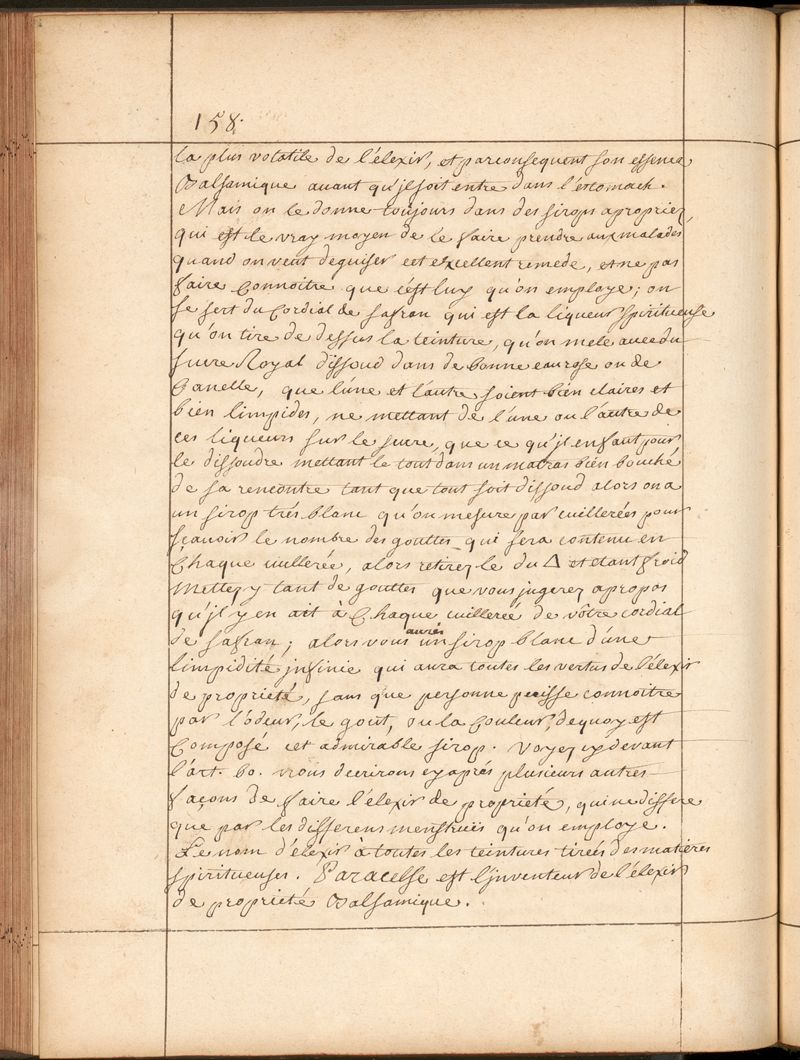 158.
la plus volatile de l'élexir, et parconsequent son essence
Balsamique auant qu'jl soit entre dans l'estomach.
Mais on le donne toujours dans des sirops apropriez,
qui est le vray moyen de le faire prendre aux malades
quand on veut deguiser cet excellent remede, et ne pas
faire connoitre que c'est luy qu'on employe; on
se sert du Cordial de safran qui est la liqueur spiritueuse
qu'on tire de dessus la teinture, qu'on mele auec du
sucre Royal dissoud dans de bonne eau rose ou de
Canelle, que l'úne et l'autre soient bien claires et
bien limpides, ne mettant de l'une ou l'autre de
ces liqueurs sur le sucre, que ce qu'jl en faut pour
le dissoudre mettant le tout dans un matras bien bouché
de sa rencontre tant que tout soit dissoud alors on a
un sirop trés blanc qu'on mesure par cuillerées pour
sçauoir le nombre des gouttes qui sera contenu en
Chaque cuillerée, alors retirez le du △ et etant froid
mettez y tant de gouttes que vous jugerez apropos
qu'jl y en ait à Chaque cuillereé de vôtre cordial
de safran; alors vous aurés un sirop blanc d'úne
limpidité jnfinie qui aura toutes les vertus de l'élexir
de propriété, sans que personne puisse connoitre
par l'odeur, le gout, ou la Couleur, dequoy est
Composé cet admirable sirop. Voyez cy devant
l'art. 60. nous decrirons cy aprés plusieurs autres
façons de faire l'élexir de propriété, qui ne differe
que par les differens menstruës qu'on employe.
Le nom d'élexir à toutes les teintures tireés des matiéres
spiritueuses. Paracelse est l'jnventeur de l'élexir
de proprieté Balsamique.